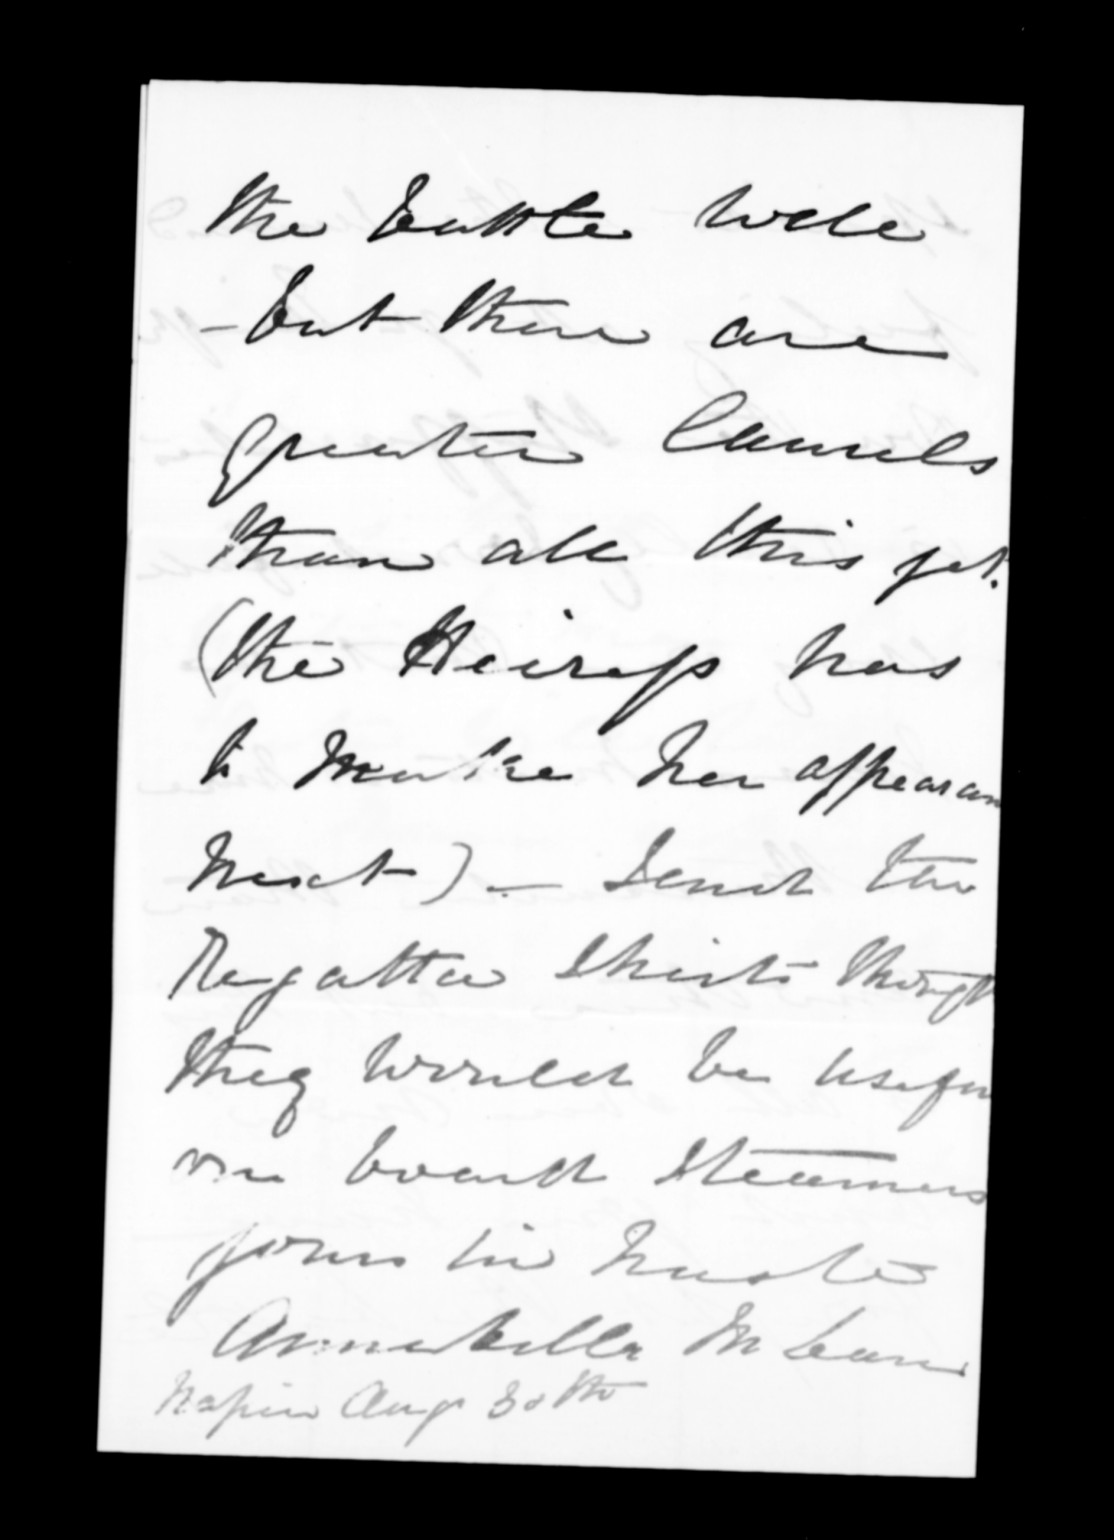 the battle well
- but there are
greater laurels
than all this yet.
(the Heiress has
to make her appearan
next) - Send two
Regatta Shirts thought
they would be useful
on board Steamers
yours in haste
Annabella McLean
Napier Augt 30th